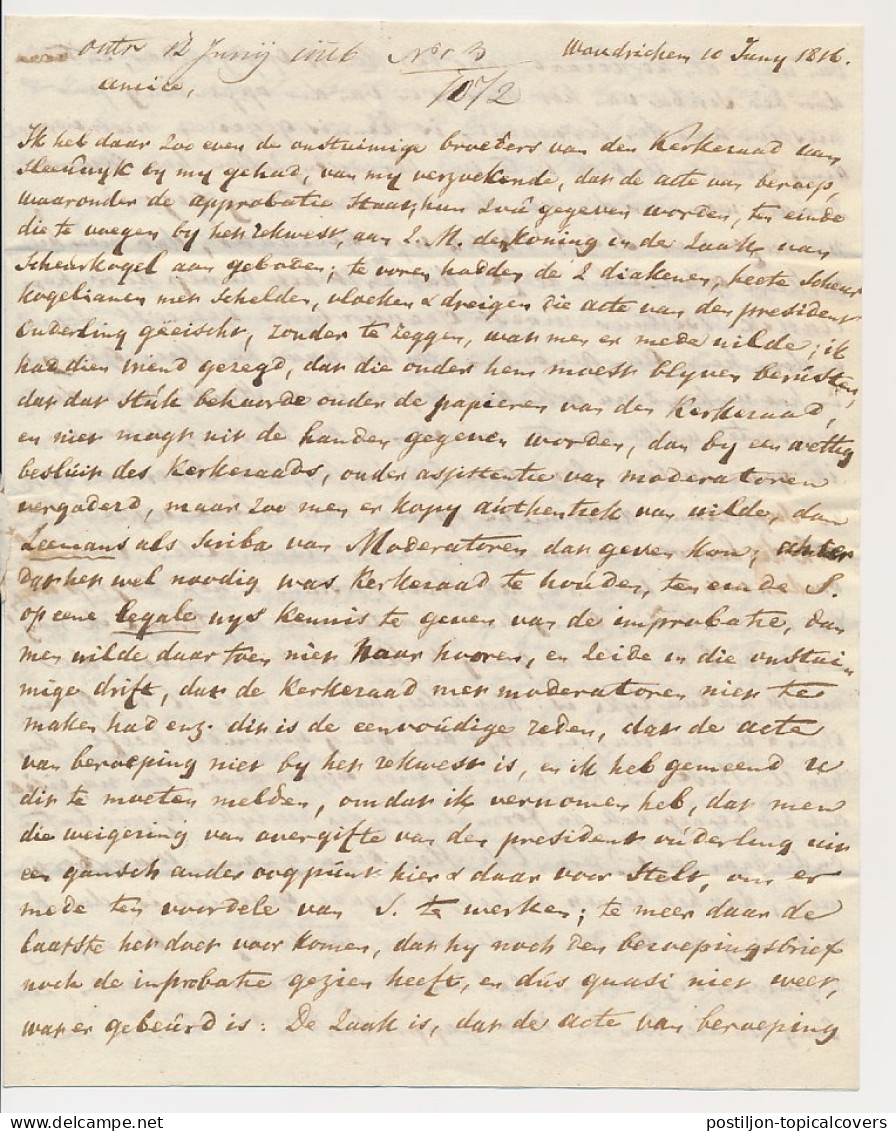 ontv 12 Junij 1816 No 3 Woudrichem 10 Juny 1816.
1072
amice,
Ik heb daar zoo even de onstuimige broeders van den Kerkeraad van
Sleeuwyk by my gehad, van my verzoekende, dat de acte van beroep,
waaronder de approbatie staat, hun zoú gegeven worden, ten einde
die te voegen by het rekwest, aan Z. M. den Koning in de zaak van
Scheurkogel aan geboden; te voren hadden de 2 diakenen, heete Scheur
kogelianen met schelden, vloeken & dreigen die acte van den president
Ouderling geëischt, zonder te zeggen, wat men er mede wilde; ik
had dien vriend gezegd, dat die onder hem moest blyven berústen,
dat dat stúk behoorde onder de papieren van den Kerkeraad,
en niet mogt uit de handen gegeven worden, dan by een wettig
besluit des Kerkeraads, onder assistentie van moderatoren
vergaderd, maar zoo men er kopy aúthentiek van wilde, dan
Leemans als scriba van Moderatoren dat geven kon;
dat het wel noodig was Kerkeraad te hoúden, ten einde S.
op eene legale wys kennis te geven van de improbatie, dan
men wilde daar toen niet naar hooren, en zeide in die onstui
mige drift, dat de Kerkeraad met moderatoren niet te
maken had enz. dit is de eenvoúdige reden, dat de acte
van beroeping niet by het rekwest is, en ik heb gemeend U
dit te moeten melden, omdat ik vernomen heb, dat men
die weigering van overgifte van den president oúderling uit
een gansch ander oogpúnt hier & daar voor stelt, om er
mede ten voordele van S. te werken; te meer daar de
laatste het doet voor komen, dat hy noch den beroepingsbrief
noch de improbatie gezien heeft, en dús quasi niet weet,
wat er gebeúrd is: De zaak is, dat de acte van beroeping
postiljon-topicalcovers